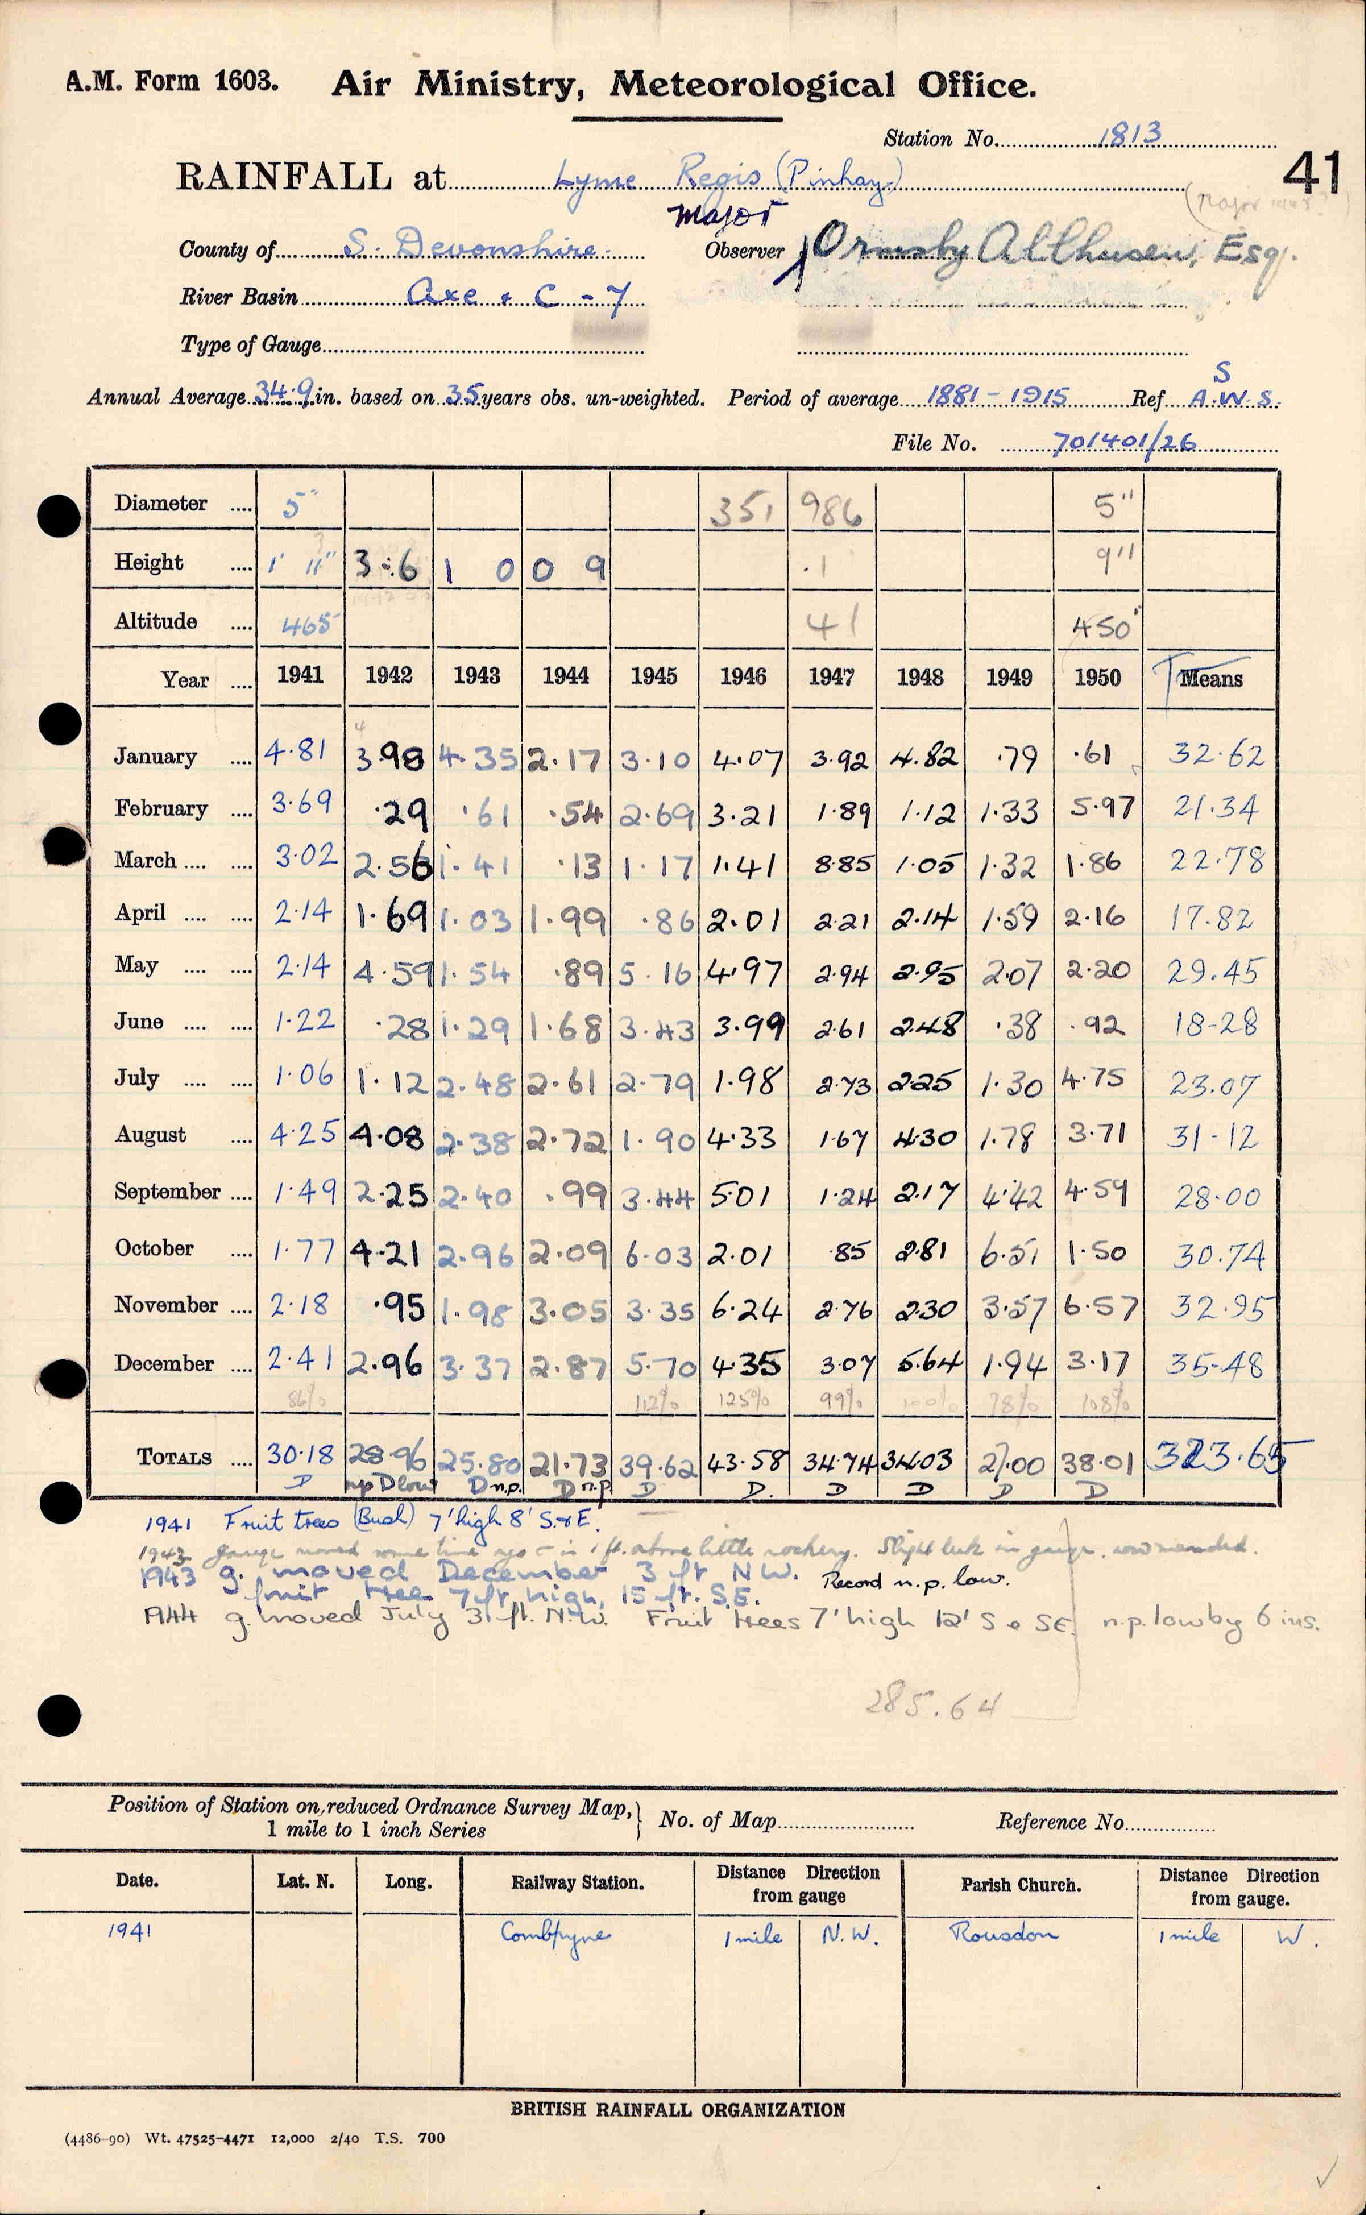 A.M. Form 1603. Air Ministry, Meteorological Office.
Station No. 1813
41
RAINFALL at Lyme Regis (Pinhay)
Major
County of S. Devonshire. Observer Ormsby Allhusen, Esq.
River Basin Axe & C - 7
Type of Gauge
S
Annual Average 34.9 in. based on 35 years obs. un-weighted. Period of average 1881-1915 Ref A.W.S.
File No. 701401/26
Diameter .... 5" 351 986 5"
Height .... 1' 11" 3 6 1 0 0 9 .1 9"
Altitude .... 465 41 450'
Year .... 1941 1942 1943 1944 1945 1946 1947 1948 1949 1950 Means
January .... 4.81 3.98 4.35 2.17 3.10 4.07 3.92 4.82 .79 .61 32.62
February .... 3.69 .29 .61 .54 2.69 3.21 1.89 1.12 1.33 5.97 21.34
March .... .... 3.02 2.56 1.41 .13 1.17 1.41 8.85 1.05 1.32 1.86 22.78
April .... .... 2.14 1.69 1.03 1.99 .86 2.01 2.21 2.14 1.59 2.16 17.82
May .... .... 2.14 4.59 1.54 .89 5.16 4.97 2.94 2.95 2.07 2.20 29.45
June .... .... 1.22 .28 1.29 1.68 3.43 3.99 2.61 2.48 .38 .92 18-28
July .... .... 1.06 1.12 2.48 2.61 2.79 1.98 2.73 2.25 1.30 4.75 23.07
August .... 4.25 4.08 2.38 2.72 1.90 4.33 1.67 4.30 1.78 3.71 31-12
September .... 1.49 2.25 2.40 .99 3.44 5.01 1.24 2.17 4.42 4.59 28.00
October .... 1.77 4.21 2.96 2.09 6.03 2.01 .85 2.81 6.51 1.50 30.74
November .... 2.18 .95 1.98 3.05 3.35 6.24 2.76 2.30 3.57 6.57 32.95
December .... 2.41 2.96 3.37 2.87 5.70 4.35 3.07 5.64 1.94 3.17 35-48
86% 112% 125% 99% 100% 78% 108%
TOTALS .... 30.18 28.96 25.80 21.73 39.62 43.58 34.74 34.03 27.00 38.01 323.65
D np D low D n.p. D n.p. D D. D D D D
1941 Fruit trees (Bush) 7' high 8' S. & E.
1943 gauge moved some time ago in 1 ft. above little rockery. Slight leak in gauge, now mended.
1943 g. moved December 3 ft N.W. Record n.p. low.
fruit tree 7 ft high, 15 ft. S.E.
1944 g. moved July 3 ft. N.W. Fruit trees 7' high 12' S & SE. n.p. low by 6 ins.
285.64
Position of Station on reduced Ordnance Survey Map, } No. of Map Reference No.
1 mile to 1 inch Series
Date. Lat. N. Long. Railway Station. Distance Direction from gauge Parish Church. Distance Direction from gauge.
1941 Combpyne 1 mile N.W. Rousdon 1 mile W.
BRITISH RAINFALL ORGANIZATION
(4486-90) Wt. 47525-4471 12,000 2/40 T.S. 700